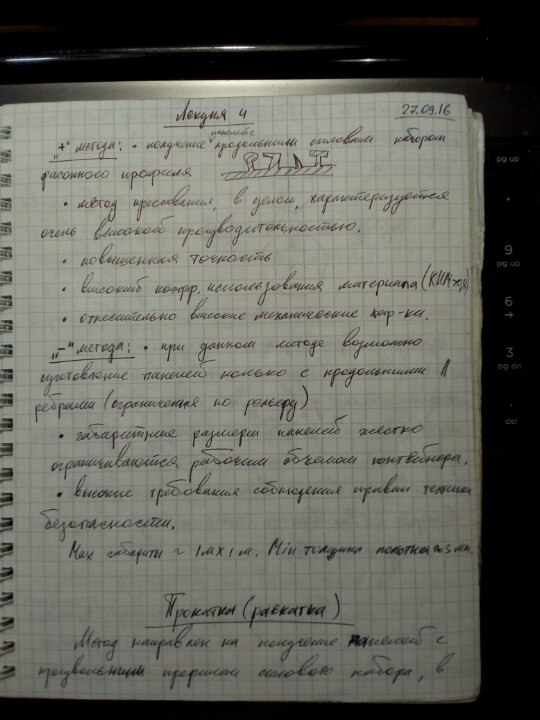 Лекция 4
27.09.16
„+“ метода: • получение панелей с продольным силовым набором
фасонного профиля
• метод прессования, в целом, характеризуется
очень высокой производительностью.
• повышенная точность
• высокий коэфф. использования материала (КИМ
• относительно высокие механические хар-ки.
„–“ метода: • при данном методе возможно
изготовление панелей только с продольными //
ребрами (ограничения по рельефу)
• габаритные размеры панелей жестко
ограничиваются рабочим объемом контейнера.
• высокие требования соблюдения правил техники
безопасности.
Max габариты ~ 1м х 1м. Min толщина полотна ≈ 3 мм.
Прокатка (раскатка)
Метод направлен на получение панелей с
произвольным профилем силового набора, в
pg up
9
pg up
6
→
3
pg dn
.
del